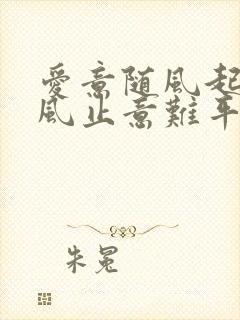 愛意随風起
風止意難平
朱冕